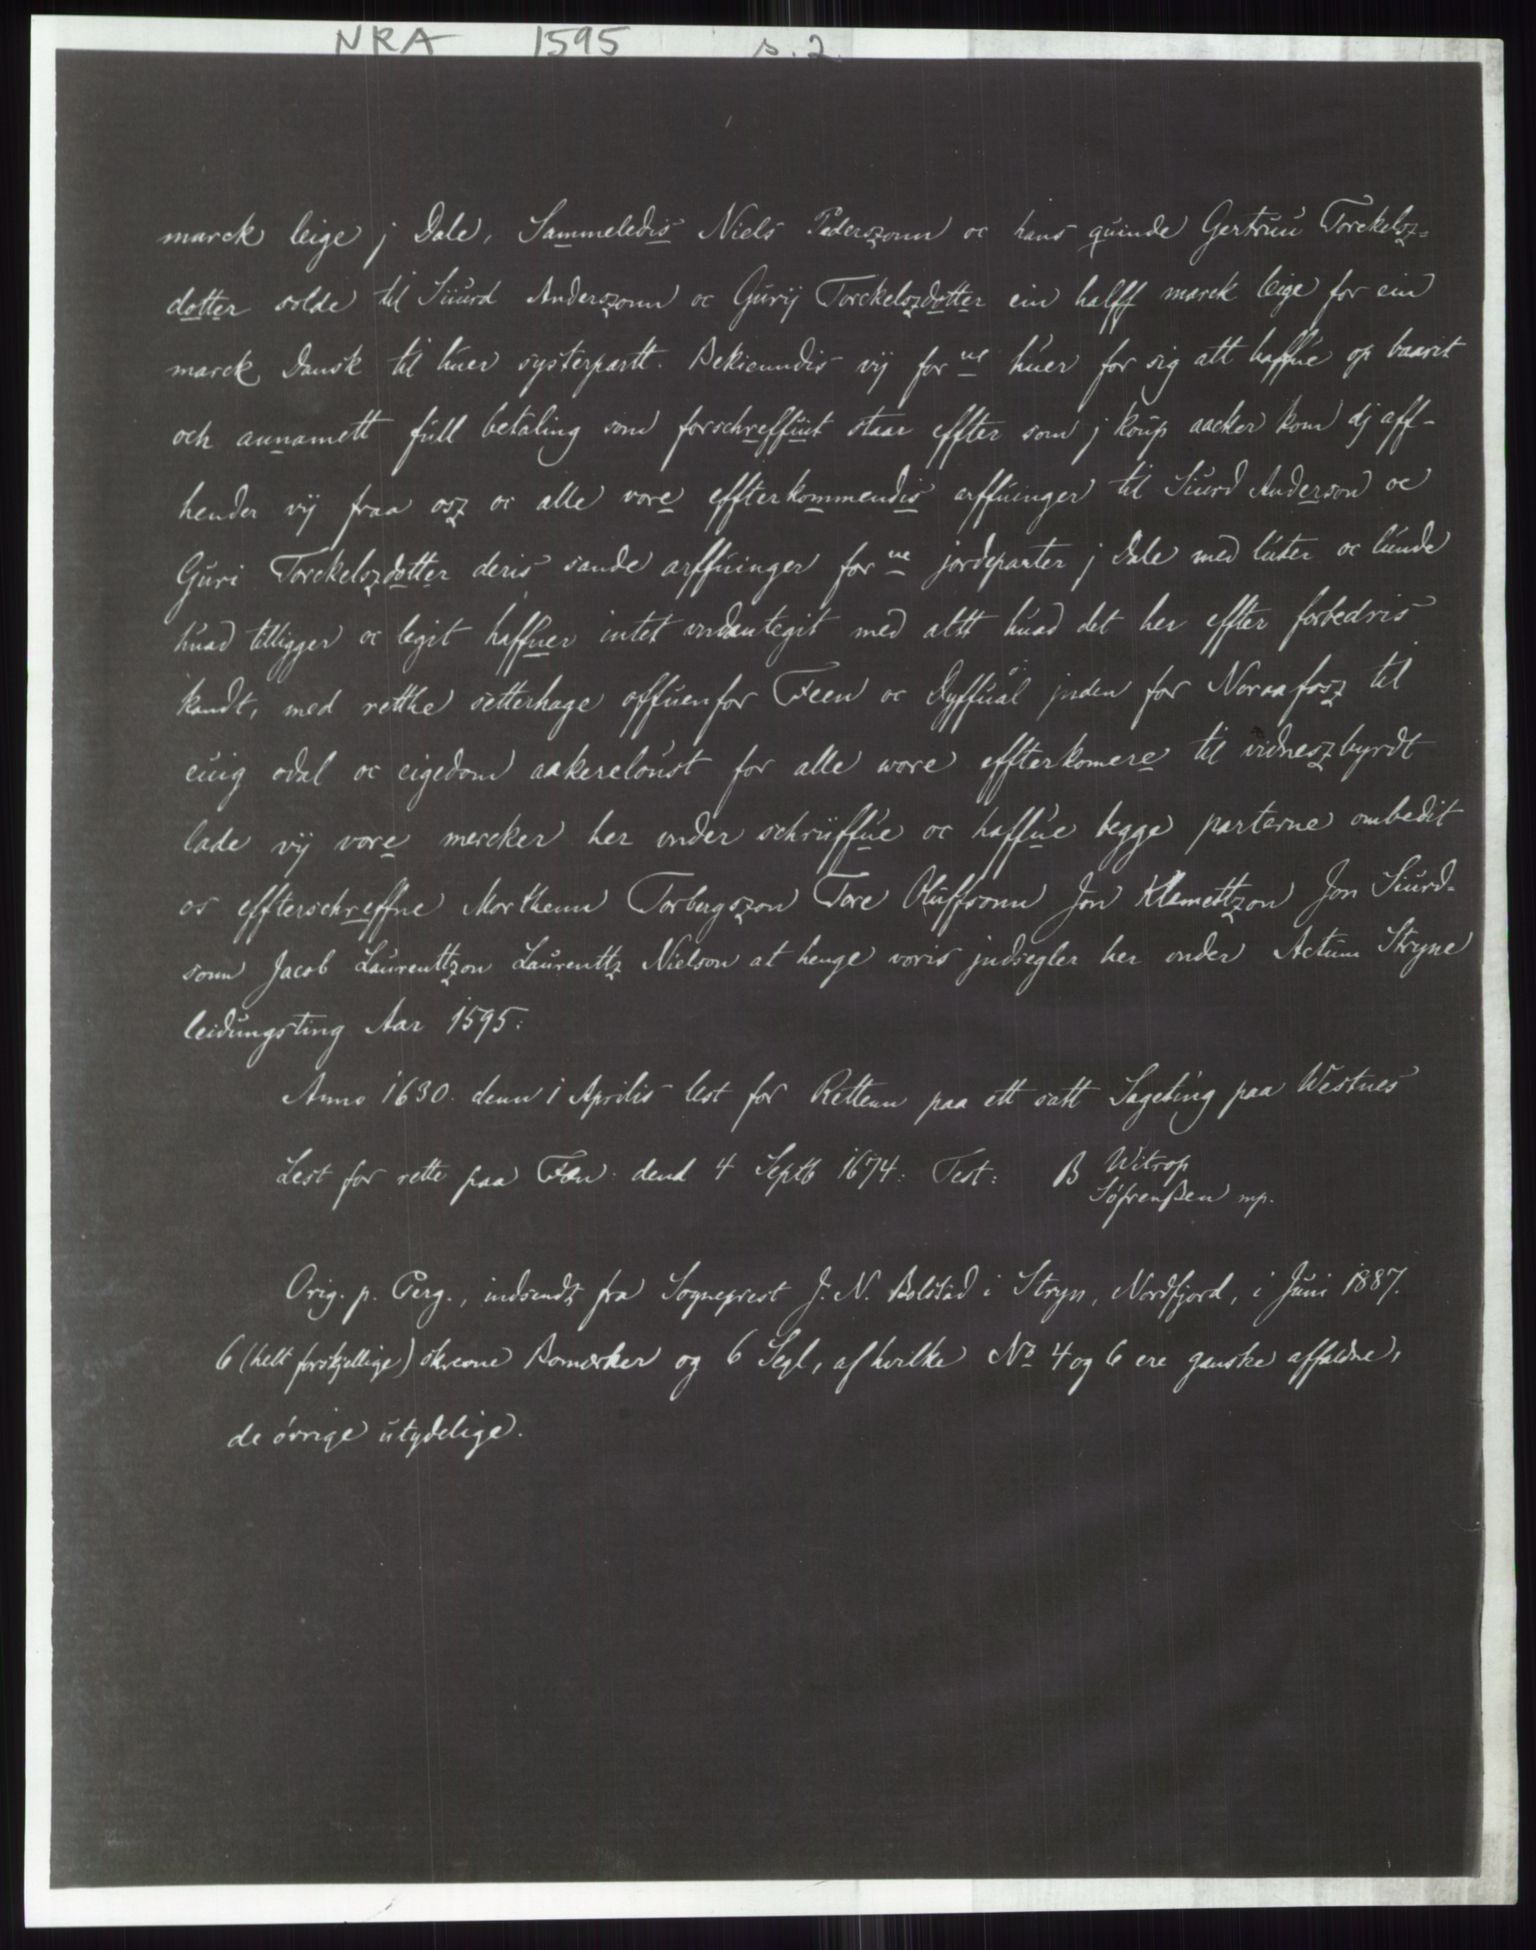 NRA 1595 s. 2.
marck leige j Dale, Sammeledis Niels Pederszonn oc hans quinde Gertruu Torckelsz-
dotter solde til Siurd Anderszonn oc Gurij Torckelszdotter ein halff marck leige for ein
marck Dansk til huer systerpartt. Bekienndis vij forne huer for sig att haffue op baarit
och annamett full betaling som forschreffuit staar effter som j koup aacker kom dj aff-
hender vij fraa osz oc alle vore effterkommendis arffuinger til Siurd Anderson oc
Guri Torckelszdotter deris sande arffuinger forne jordeparter j Dale med luter oc lunde
huad tilligger oc legit haffuer intet vndantegit med altt huad det her effter forbedris
kandt, med retthe setterhage offuenfor Feen oc Dyffual jnden for Noraafosz til
euig odal oc eigedom aakereloust for alle wore effterkomere til vidneszbyrdt
lade vij vore mercker her vnder schriiffue oc haffue begge parterne ombedit
os effterschreffne Morthenn Torbergszon Tore Oluffsonn Jon Klamettzon Jon Siurd-
sonn Jacob Laurenttzon Laurenttz Nielson at henge voris jndsegler her vnder Actum Stryne
leidungsting Aar 1595:
Anno 1630. denn 1 Aprilis lest for Rettenn paa ett satt Sageting paa Westnes
Lest for rette paa Fæn dend 4 Septb 1674: Test: B Witrop
Söfrenßen mp.
Orig. p. Perg., indsendt fra Sogneprest J. N. Bolstad i Stryn, Nordfjord, i Juni 1887.
6 (helt forskjellige) skrevne Bomærker og 6 Segl, af hvilke No 4 og 6 ere ganske affaldne,
de övrige utydelige.